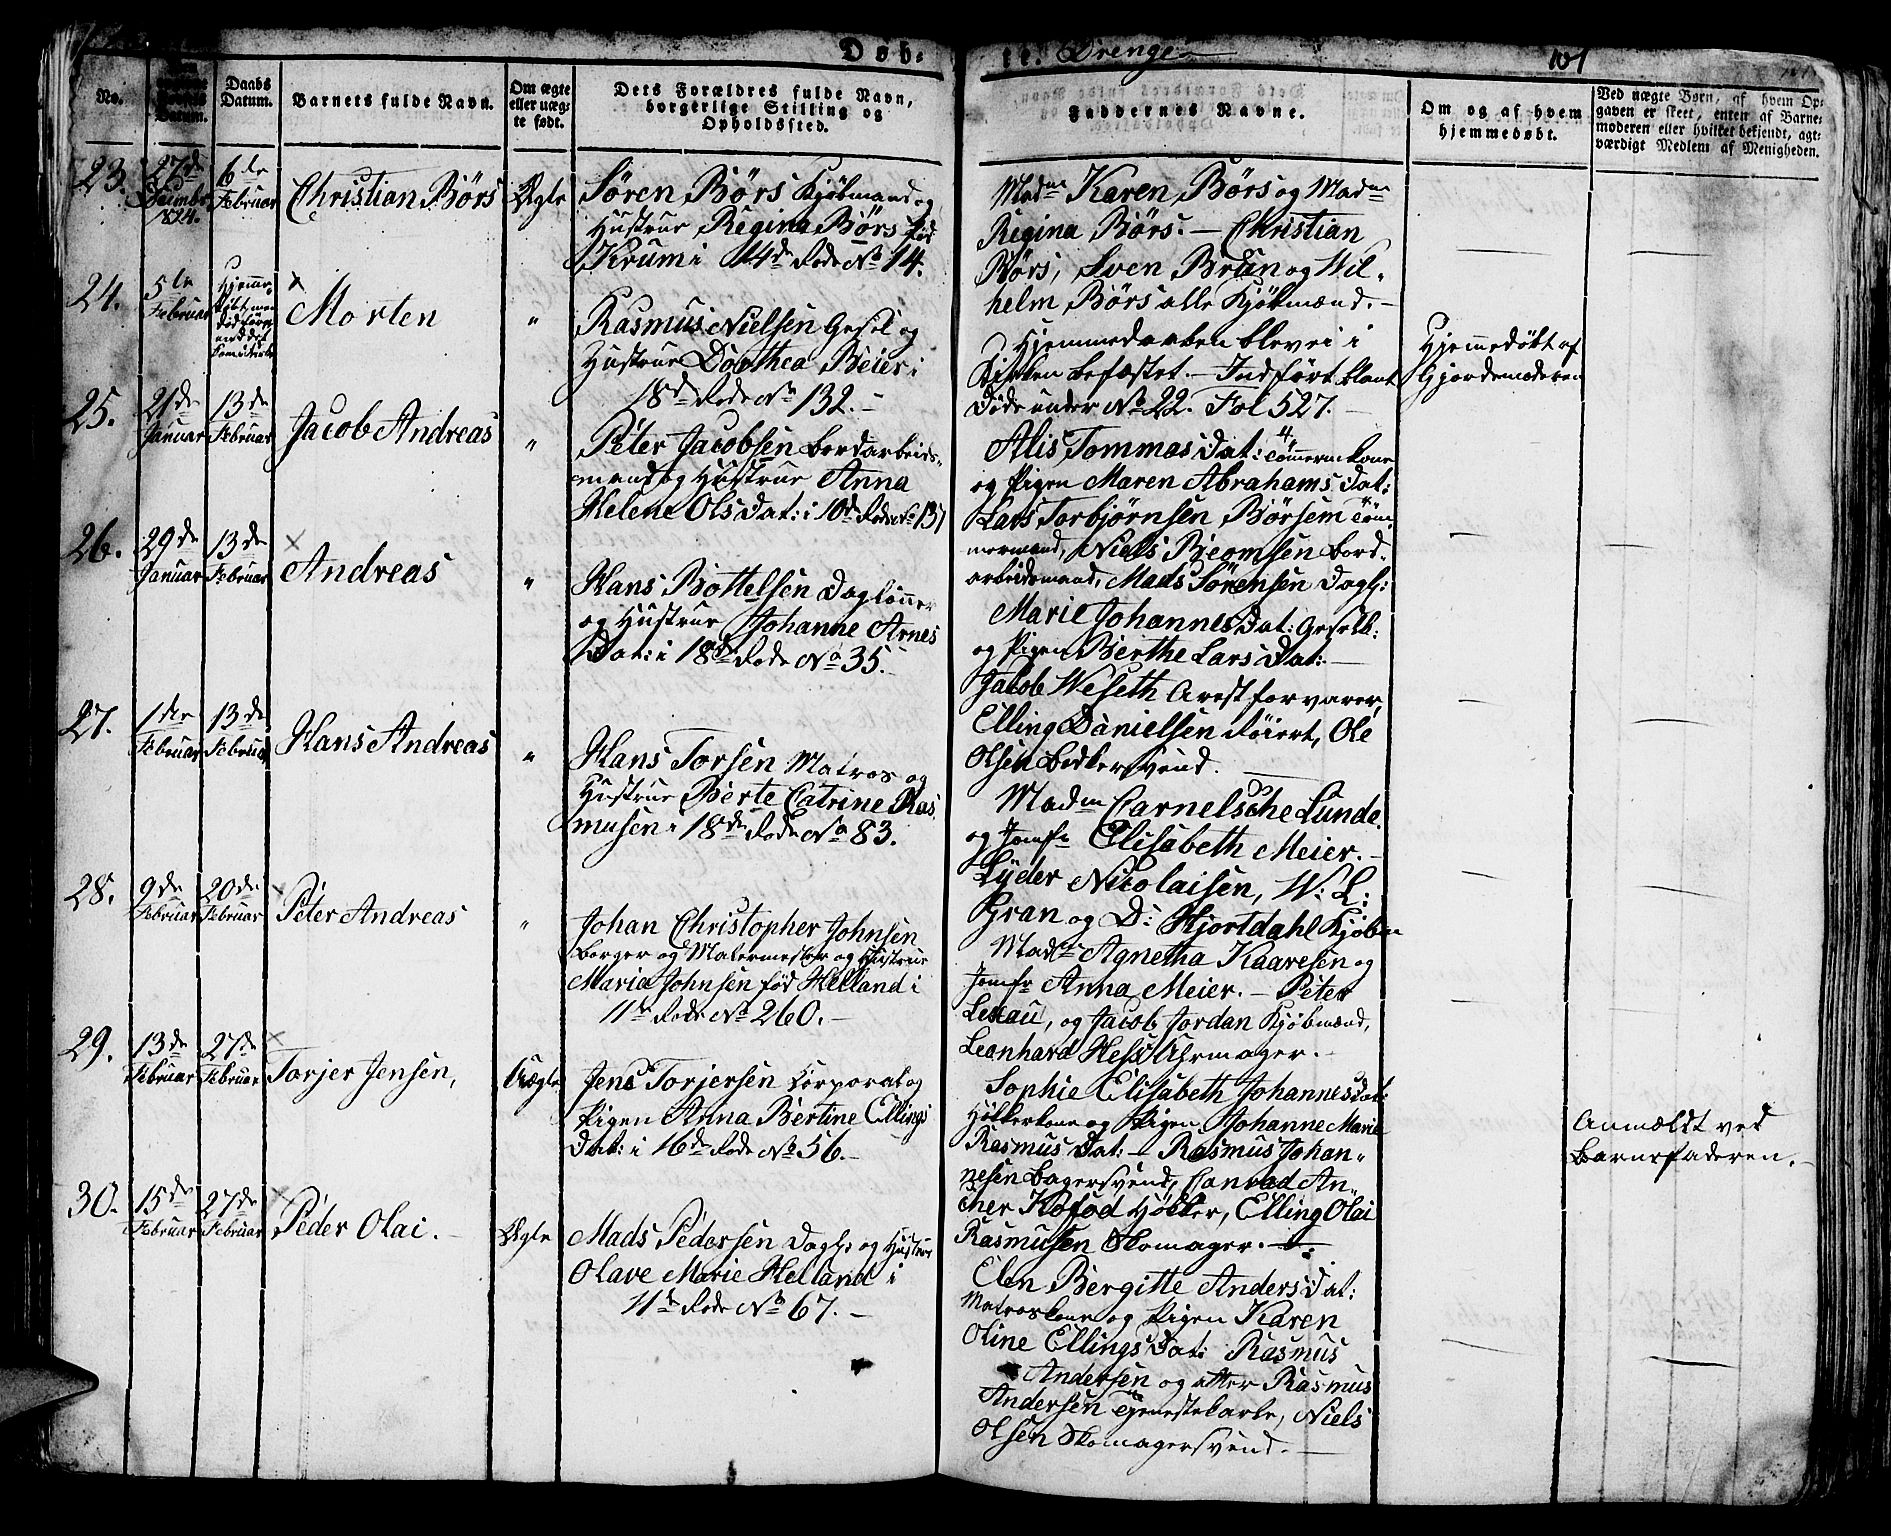 Døb-
te. Drenge
101
No.
Datum.
Daabs
Datum.
Barnets fulde Navn.
Om ægte
eller uæg-
te født.
Dets Forældres fulde Navn,
borgerlige Stilling og
Opholdssted.
Faddernes Navne.
Om og af hvem
hjemmedøbt.
Ved uægte Børn, af hvem Op-
gaven er skeet, enten af Barne-
moderen eller hvilket bekjendt, agt-
værdigt Medlem af Menigheden.
23.
27de
Decembr
1824.
6te
Februar
Christian Börs
Ægte
Sören Börs Kjöbmand og
Hustrue Regina Börs föd
Krum i 14de Rode No 14.
Madme Karen Börs og Madme
Regina Börs. — Christian
Börs, Sven Brun og Wil-
helm Börs alle Kjöbmænd. —
24.
5te
Februar
Hjemme-
döbt, men
död förend
det
kom i Kirke
×
Morten
"
Rasmus Nielsen Gesel og
Hustrue Dorthea Beier i
18de Rode No 132. —
Hjemmedaaben blev ei i
Kirken befæstet. — Indfört blant
Döde under No 22. Fol 527. —
Hjemmedöbt af
Gjordemoderen
25.
21de
Januar
13de
Februar
Jacob Andreas
"
Peter Jacobsen Bordarbeids-
mand og Hustrue Anna
Helene Olsdat: i 10de Rode No 137
Alis Tommasdat: Tömermkone
og Pigen Maren Abrahamsdat:
Lars Torbjörnsen Börsem Töm-
mermand, Niels Bjeomsen Bord-
arbeidsmand, Mads Sörensen Dagl:
26.
29de
Januar
13de
Februar
×
Andreas
"
Hans Bottelsen Daglönner
og Hustrue Johanne Arnes
Dat: i 18de Rode No 35. —
Marie Johannesdat: Geselk:
og Pigen Berthe Larsdat: —
Jacob Weseth Arestforvarer,
Elling Danielsen Röiert, Ole
Olsen Bödkersvend.
27.
1ste
Februar
13de
Februar
Hans Andreas
"
Hans Torsen Matros og
Hustrue Berte Catrine Ras
musen i 18de Rode No 83.
Madm Carnelsche Lunde
og Jomfr Elisabeth Meier. —
Lyder Nicolaisen, W: L:
Gran og D: Hjortdahl Kjöbm
28.
9de
Februar
20de
Februar
×
Peter Andreas
"
Johan Christopher Johnsen
Borger og Malermester og Hustrue
Maria Johnsen föd Helland i
11te Rode No 260. —
Madme Agnetha Kaaresen og
Jomfr Anna Meier. — Peter
Lexau, og Jacob Jordan Kjöbmænd,
Leonhard Hess Uhrmager. —
29.
13de
Februar
27de
Februar
×
Torjer Jensen,
Uægte
Jens Torjersen Corporal og
Pigen Anna Bertine Ellings
Dat: i 16de Rode No 56. —
Sophie Elisabeth Johannesdat:
Hökkerkone og Pigen Johanne Marie
Rasmusdat: — Rasmus Johan-
nesen Bagersvend, Conrad An-
cher Kofod Hökker, Elling Olai
Rasmusen Skomager. —
Anmældt ved
Barnefaderen. —
30.
15de
Februar
27de
Februar
×
Peder Olai. —
Ægte
Mads Pedersen Dagl: og Hustrue
Olave Marie Helland i
11te Rode No 67. —
Elen Bergitte Andersdat:
Matroskone og Pigen Karen
Oline Ellingsdat: Rasmus
Andersen og atter Rasmus
Andersen Tjenestekarle, Niels
Olsen Skomagersvend. —